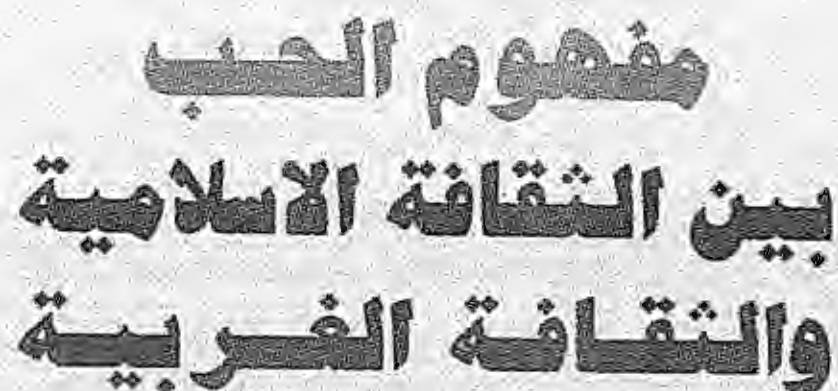 مفهوم الحب
بين الثقافة الاسلامية
والثقافة الغربية